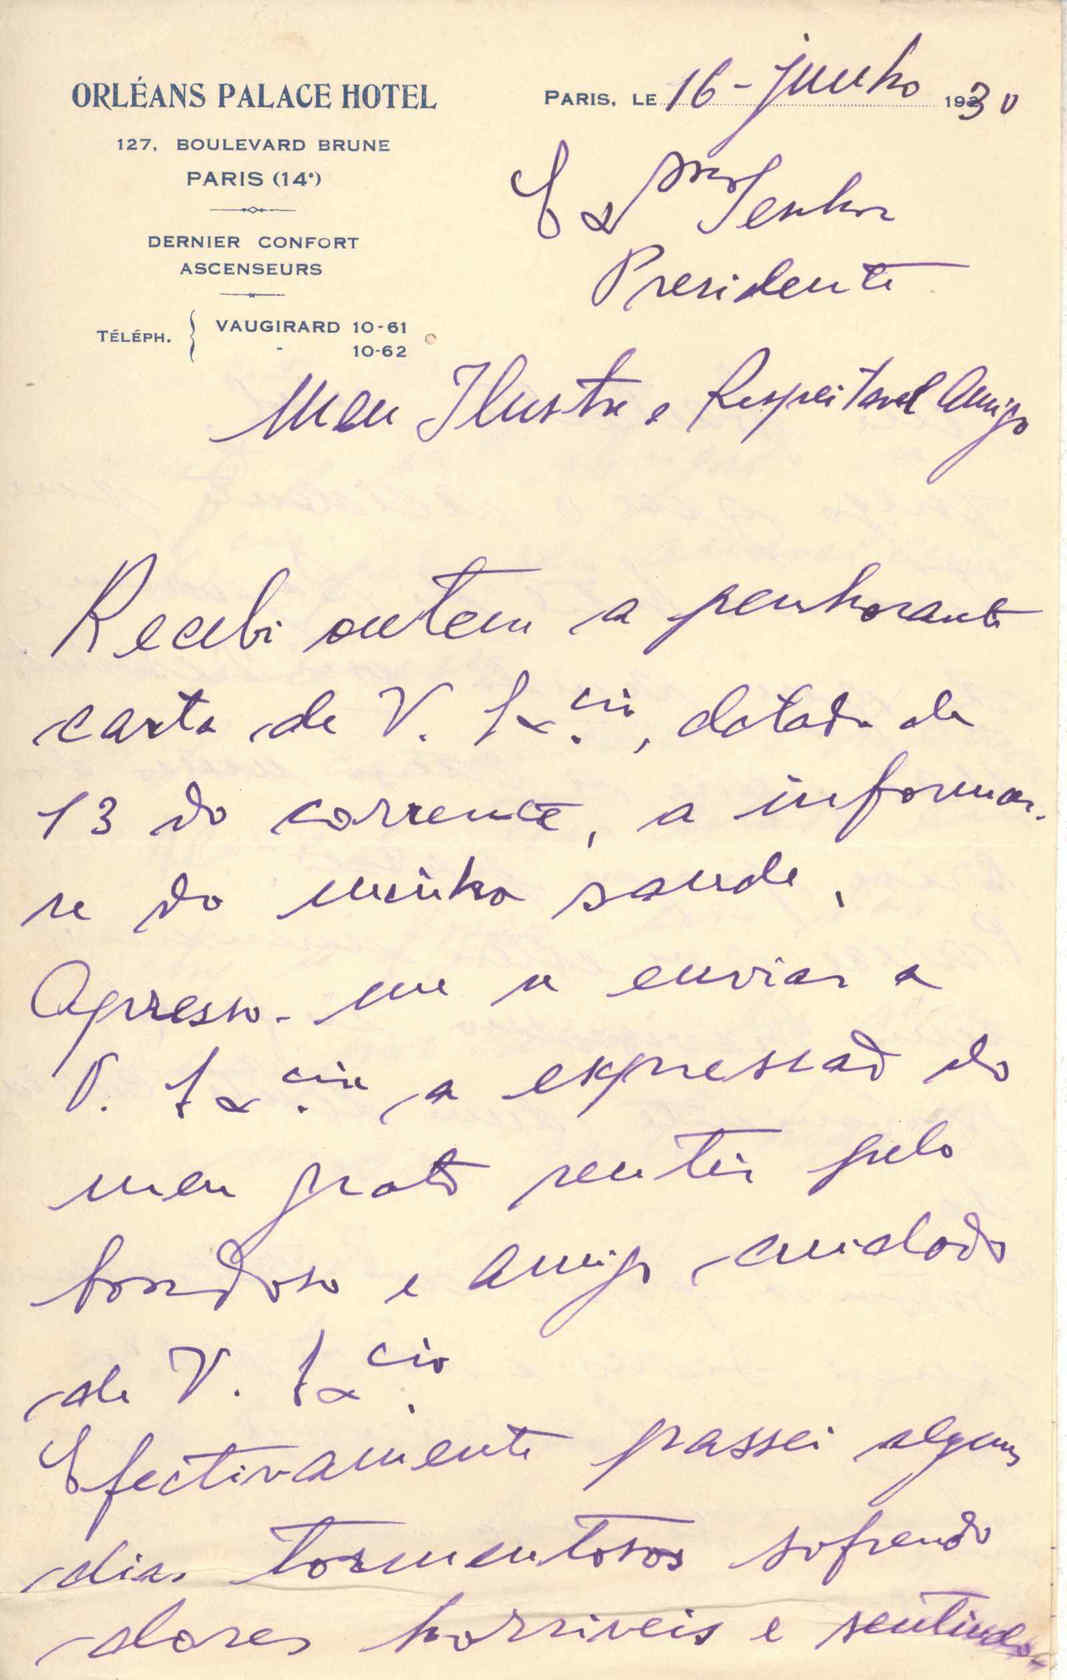 ORLÉANS PALACE HOTEL
127, BOULEVARD BRUNE
PARIS (14e)
DERNIER CONFORT
ASCENSEURS
TÉLÉPH. { VAUGIRARD 10-61
- 10-62
PARIS, LE 16 - junho 1930
Exmo Senhor
Presidente
Meu Ilustre e Respeitavel Amigo
Recebi ontem a penhorante
carta de V. Excia, datada de
13 do corrente, a informar-
se da minha saude.
Apresso-me a enviar a
V. Excia a expressão do
meu grato sentir pelo
bondoso e amigo cuidado
de V. Excia.
Efectivamente passei alguns
dias tormentosos sofrendo
dores horriveis e sentindo-